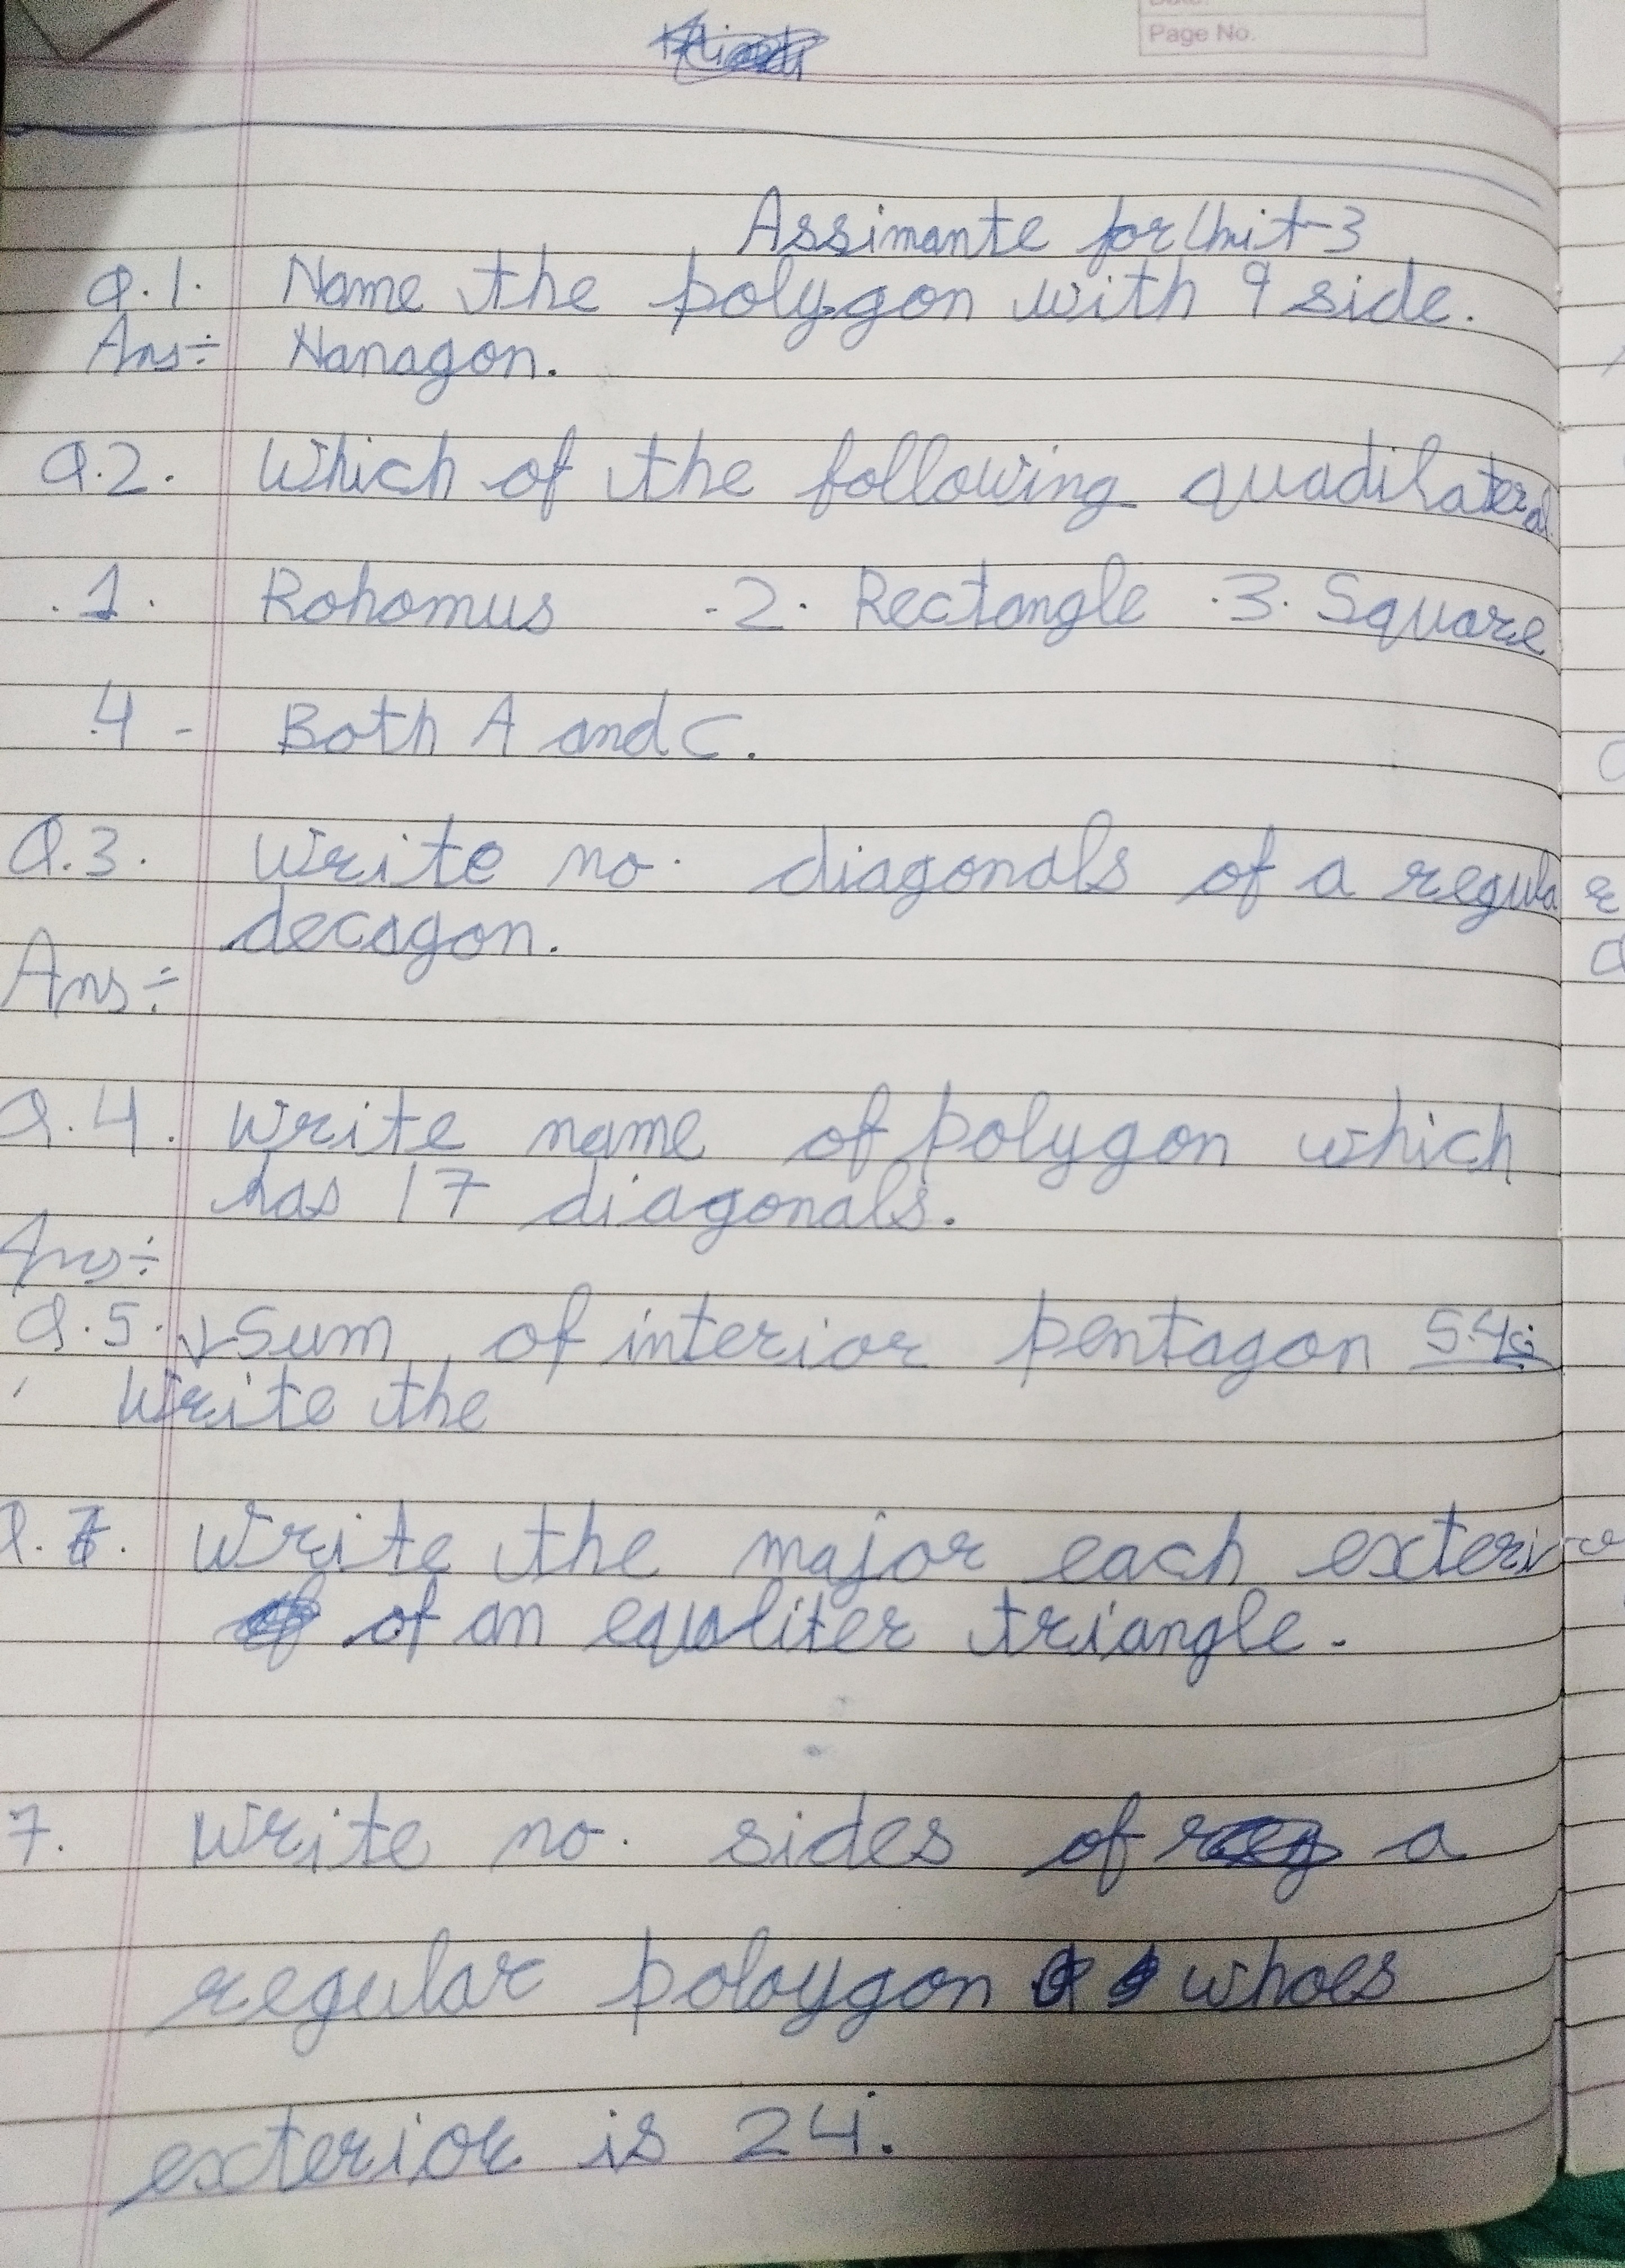 Page No.
Assimante for Unit-3
Q.1. Name the polygon with 9 side.
Ans÷ Nanagon.
Q.2. Which of the following quadilateral
.1. Rohomus .2. Rectangle .3. Square
4 - Both A and C.
Q.3. Write no. diagonals of a regular
decagon.
Ans÷
Q.4. Write name of polygon which
has 17 diagonals.
Ans÷
Q.5. Sum of interior pentagon
Write the
Q. Write the major each exterior
of an equaliter triangle.
7. Write no. sides of a
regular poloygon whoes
exterior is 24.